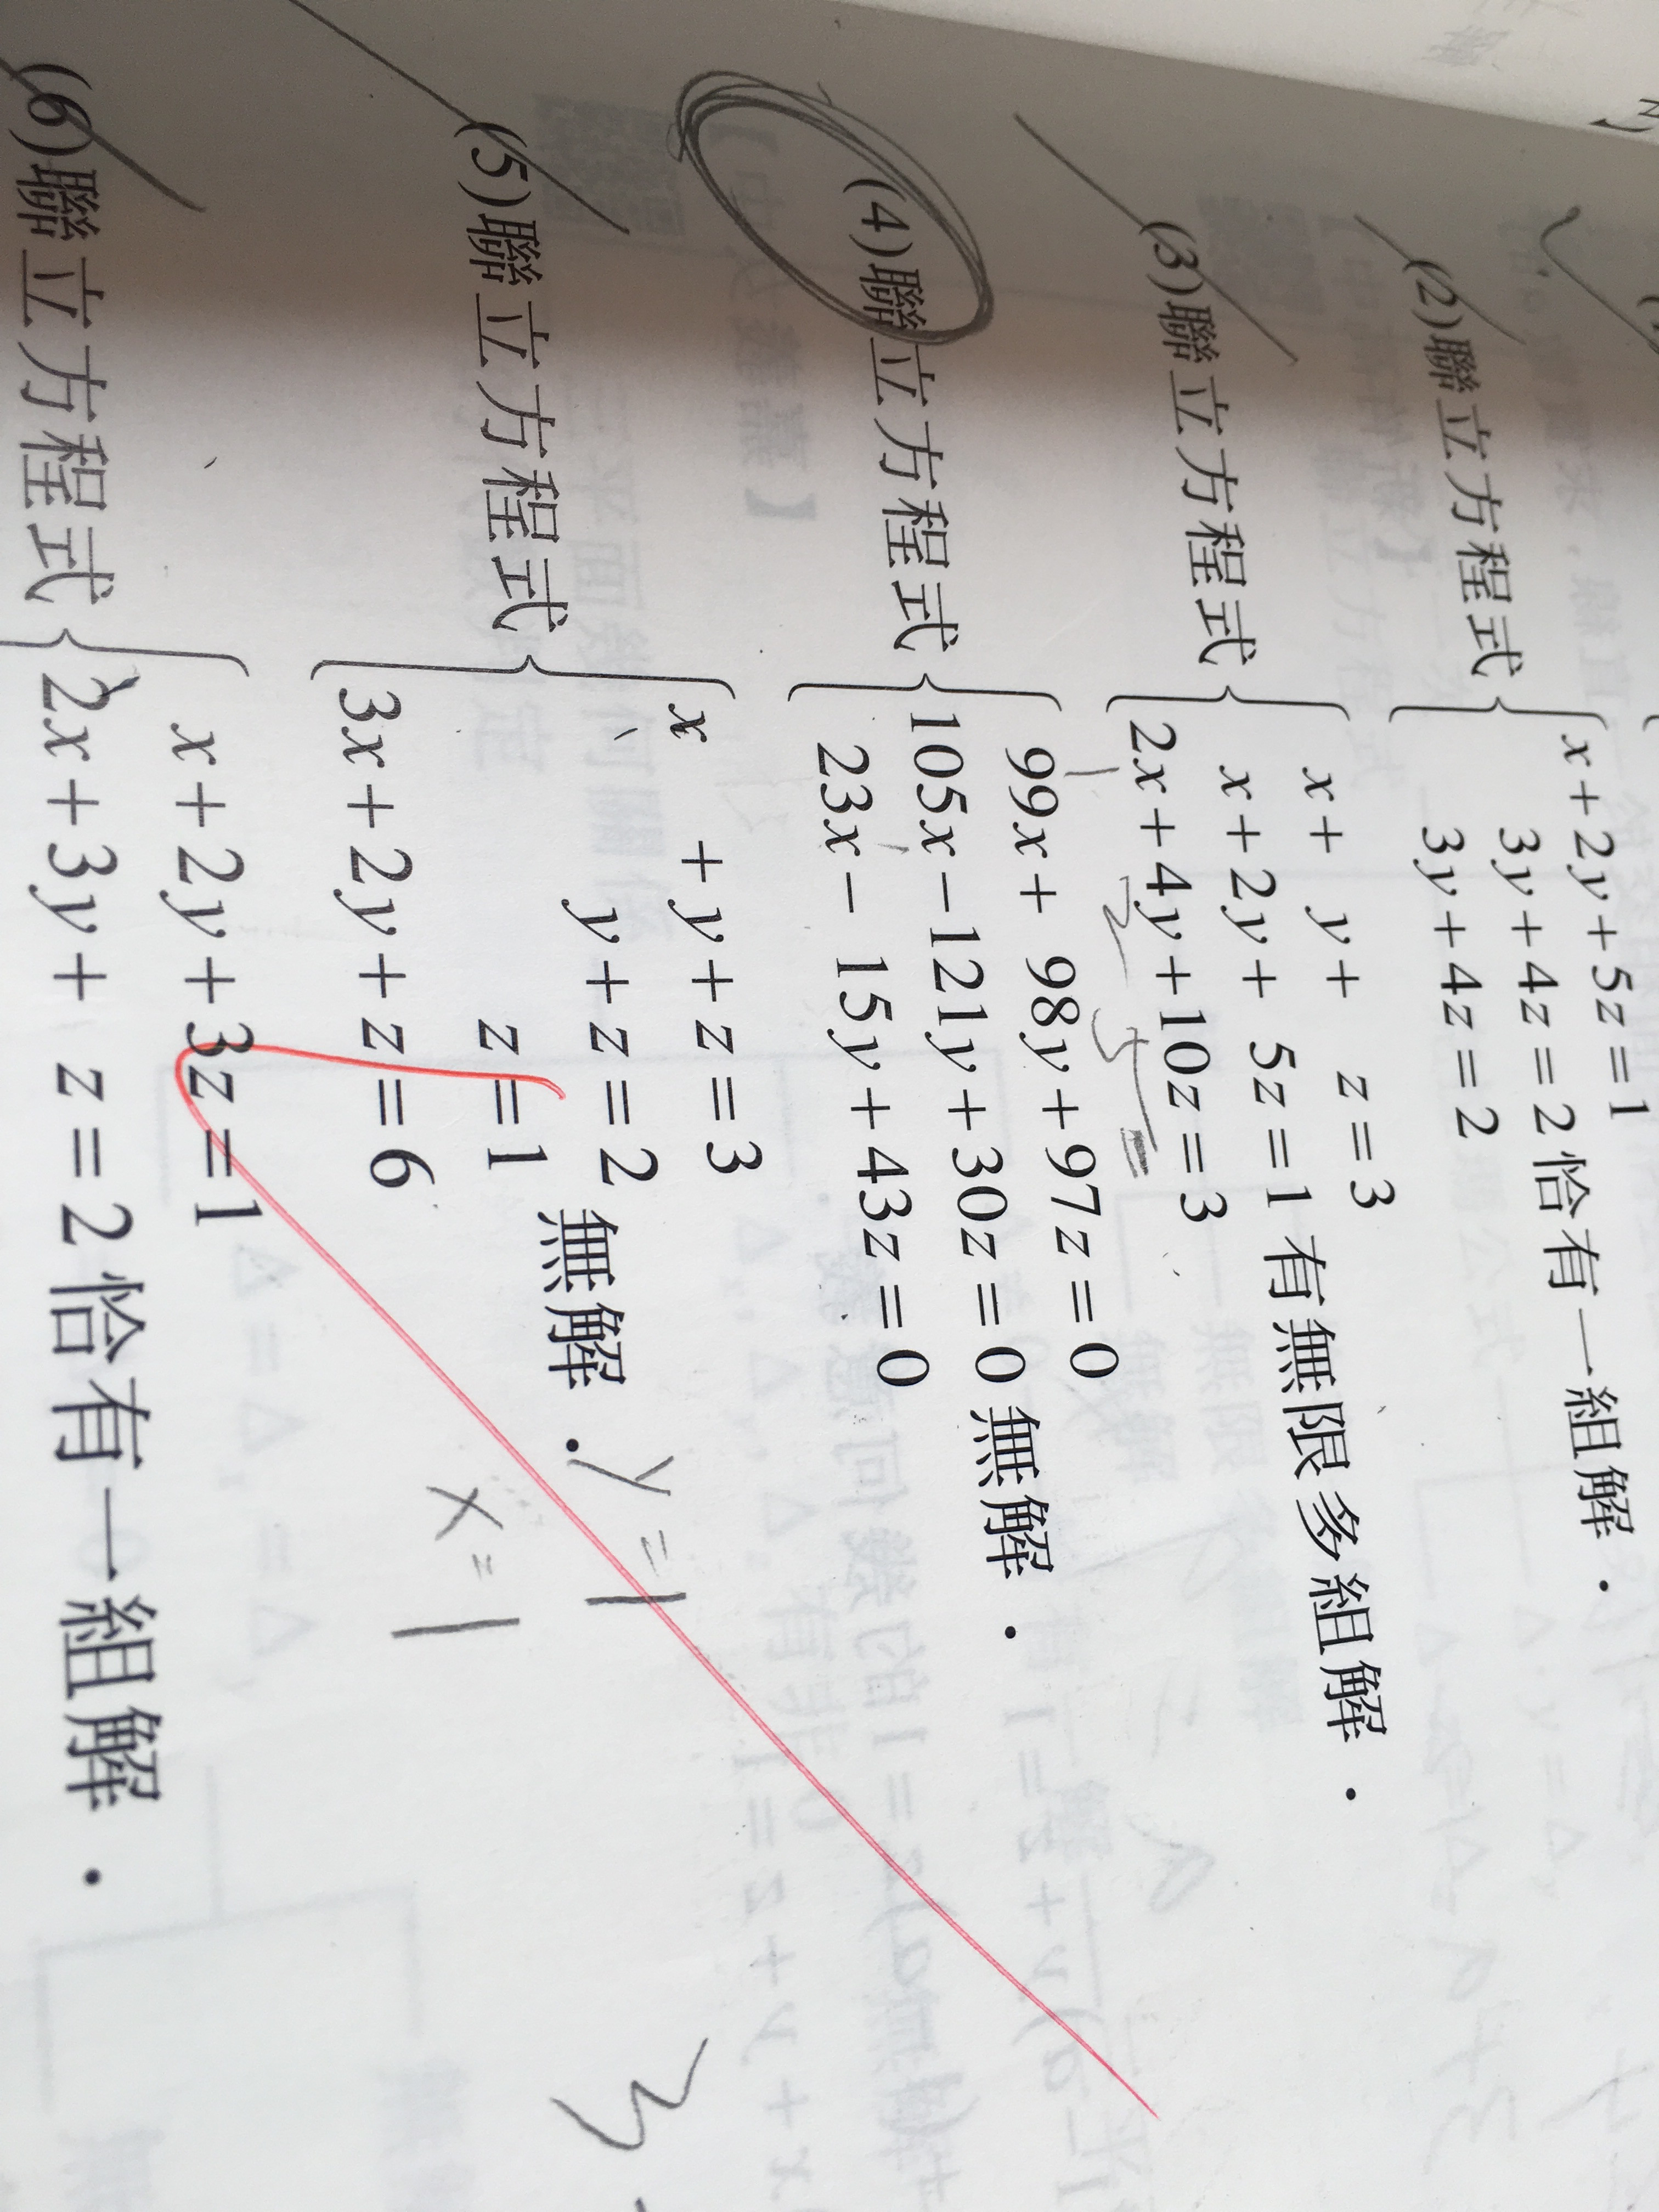 x+2y+5z=1
(2)聯立方程式 3y+4z=2 恰有一組解．
3y+4z=2
x+ y+ z=3
(3)聯立方程式 x+2y+ 5z=1 有無限多組解．
2x+4y+10z=3
99x+ 98y+97z=0
(4)聯立方程式 105x−121y+30z=0 無解．
23x− 15y+43z=0
x +y+z=3
y+z=2
(5)聯立方程式 無解．
z=1
3x+2y+z=6
y=1
x=1
x+2y+3z=1
(6)聯立方程式 2x+3y+ z=2 恰有一組解．